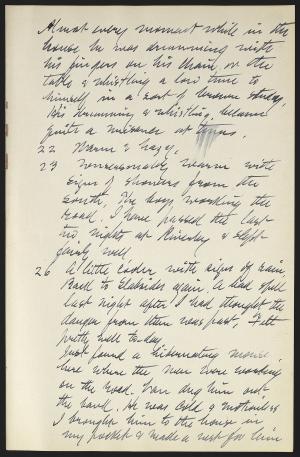 Almost every moment while in the
house he was drumming with
his fingers on his chair, or the
table & whistling a low tune to
himself in a sort of brown study,
His drumming & whistling became
quite a nuisance at times.
22 Warm & hazy.
23 Unseasonably warm with
signs of showers from the
South, The boys working the
road. I have passed the last
two nights at Riverby & slept
fairly well
26 A little cooler with signs of rain,
Back to Slabsides again. A bad spell
last night after I had thought the
danger from them was past, Felt
pretty well to-day.
Just found a hibernating mouse
here where the men were working
on the road. Van dug him out
the sand. He was cold & motionless
I brought him to the house in
my pocket & made a nest for him